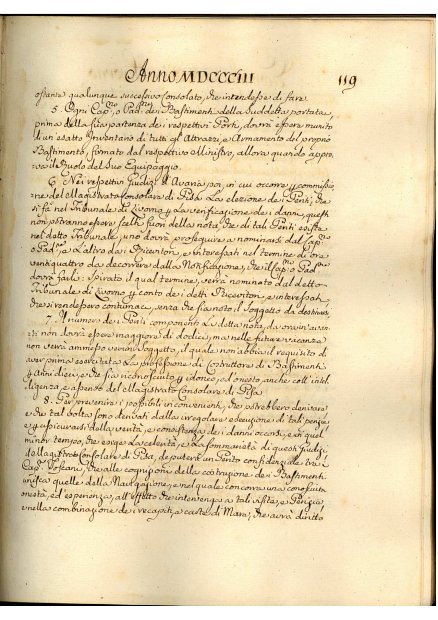 Anno MDCCCIII 119
ostante qualunque successivo Consolato, che intendesse di fare
5. Ogni Cap.no o Pad.rone dei Bastimenti della suddetta portata,
prima della sua partenza dei respettivi Porti, dovrà essere munito
d'un esatto Inventario di tutti gl'Attrazzi, e Armamento del proprio
Bastimento, firmato dal respettivo Ministro, allora quando appro
va il Ruolo del suo Equipaggio.
6. Nei respettivi Giudizi d'Avaria poi, in cui occorra commissio
ne del Magistrato Consolare di Pisa la elezione dei Periti, che
si fà nel Tribunale di Livorno la verificazione dei danni, questi
non potranno essere scelti fuori della nota, che di tali Periti esiste
nel detto Tribunale; uno dovrà proseguire a nominarsi dal Cap.no
o Pad.rone, e l'altro dai Ricevitori, e interessati nel termine di ore
ventiquattro da decorrere dalla Notificazione, che il Cap.no o Pad.rone
dovrà farli: spirato il qual termine, verrà nominato dal detto
Tribunale di Livorno per conto dei detti Ricevitori, e interessati,
che si rendessero contumaci, senza che sia noto il soggetto da destinarsi
7. Il numero dei Periti componenti la detta nota, da ora in avve
nire non dovrà essere maggiore di dodici, ma nelle future vacanze
non verrà ammesso verun soggetto, il quale non abbia il requisito di
aver prima esercitata la professione di Costruttore di Bastimenti
per Anni dieci, e che sia riconosciuto idoneo, ed onesto anche coll'intel
ligenza, e assenso del Magistrato Consolare di Pisa
8. Per prevenire i possibili inconvenienti, che potrebbero derivare
e che tal volta sono derivati dalla irregolare esecuzione di tali perizie
e per assicurarsi della verità, e consistenza dei danni occorsi, e in quel
minor tempo, che esige la celerità, e la sommarietà di questi Giudizi,
il Magistrato Consolare di Pisa, deputerà un Perito confidenziale tra i
Cap.ni Toscani, che alle cognizioni della costruzione dei Bastimenti
unisca quelle della Navigazione, e nel quale concorra una conosciuta
onestà, ed esperienza, all'effetto che intervenga a tali visite, e Perizie
e nella combinazione dei recapiti, e carte di Mare, che avrà diritto